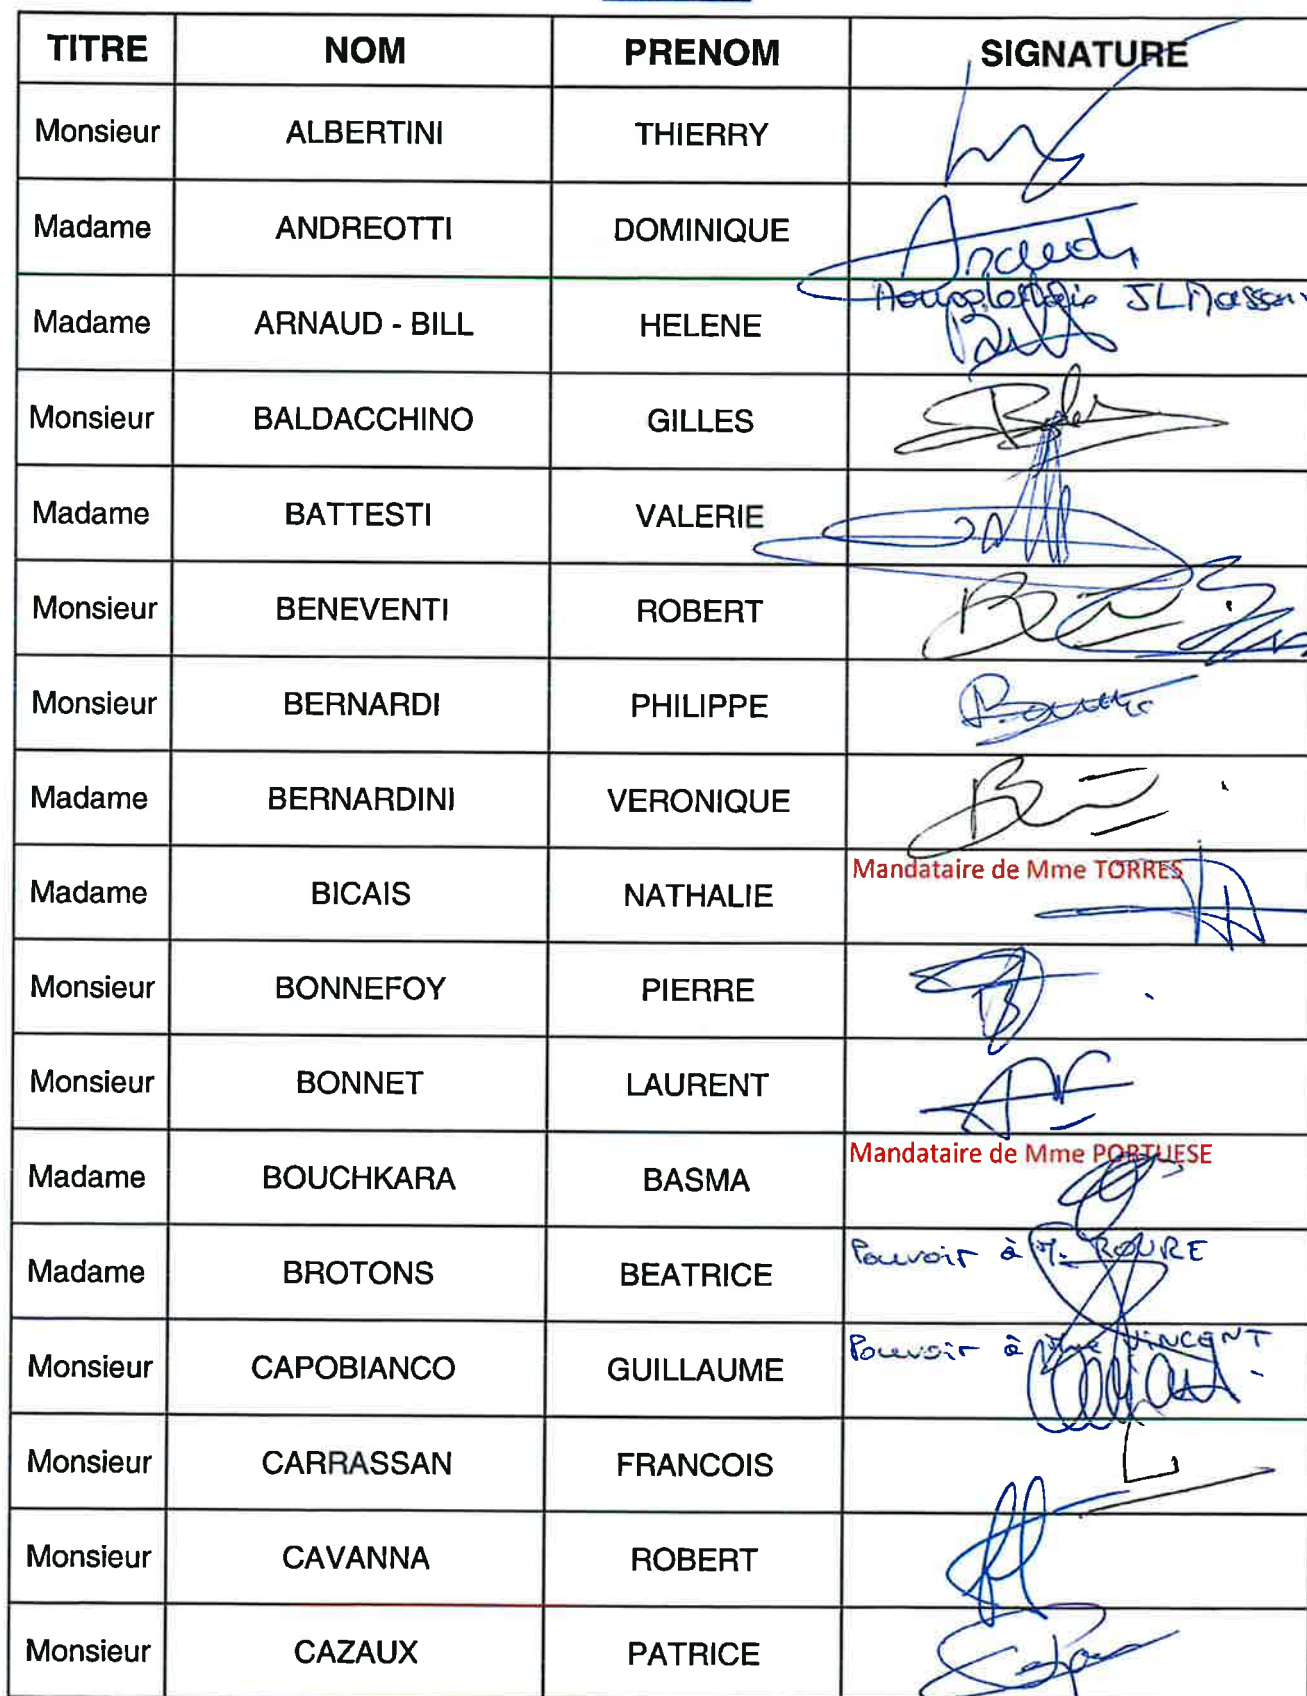 TITRE NOM PRENOM SIGNATURE
Monsieur ALBERTINI THIERRY
Madame ANDREOTTI DOMINIQUE
Madame ARNAUD - BILL HELENE
Monsieur BALDACCHINO GILLES
Madame BATTESTI VALERIE
Monsieur BENEVENTI ROBERT
Monsieur BERNARDI PHILIPPE
Madame BERNARDINI VERONIQUE
Madame BICAIS NATHALIE Mandataire de Mme TORRES
Monsieur BONNEFOY PIERRE
Monsieur BONNET LAURENT
Madame BOUCHKARA BASMA Mandataire de Mme PORTUESE
Madame BROTONS BEATRICE Pouvoir à M. ROURE
Monsieur CAPOBIANCO GUILLAUME Pouvoir à Mme VINCENT
Monsieur CARRASSAN FRANCOIS
Monsieur CAVANNA ROBERT
Monsieur CAZAUX PATRICE